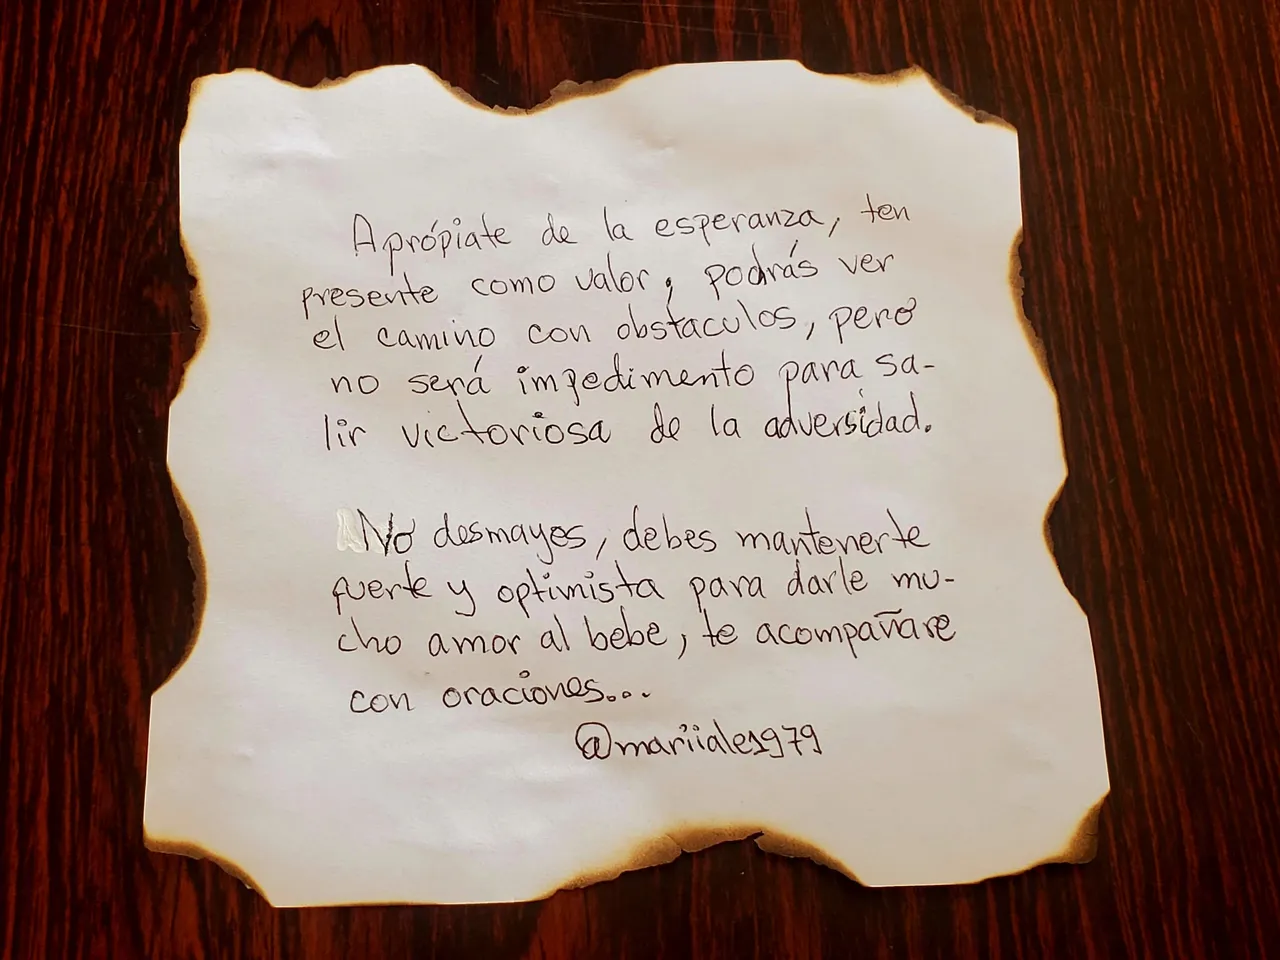 Aprópiate de la esperanza, ten
presente como valor, podrás ver
el camino con obstáculos, pero
no será impedimento para sa-
lir victoriosa de la adversidad.
No desmayes, debes mantenerte
fuerte y optimista para darle mu-
cho amor al bebe, te acompañare
con oraciones...
@mariiale1979